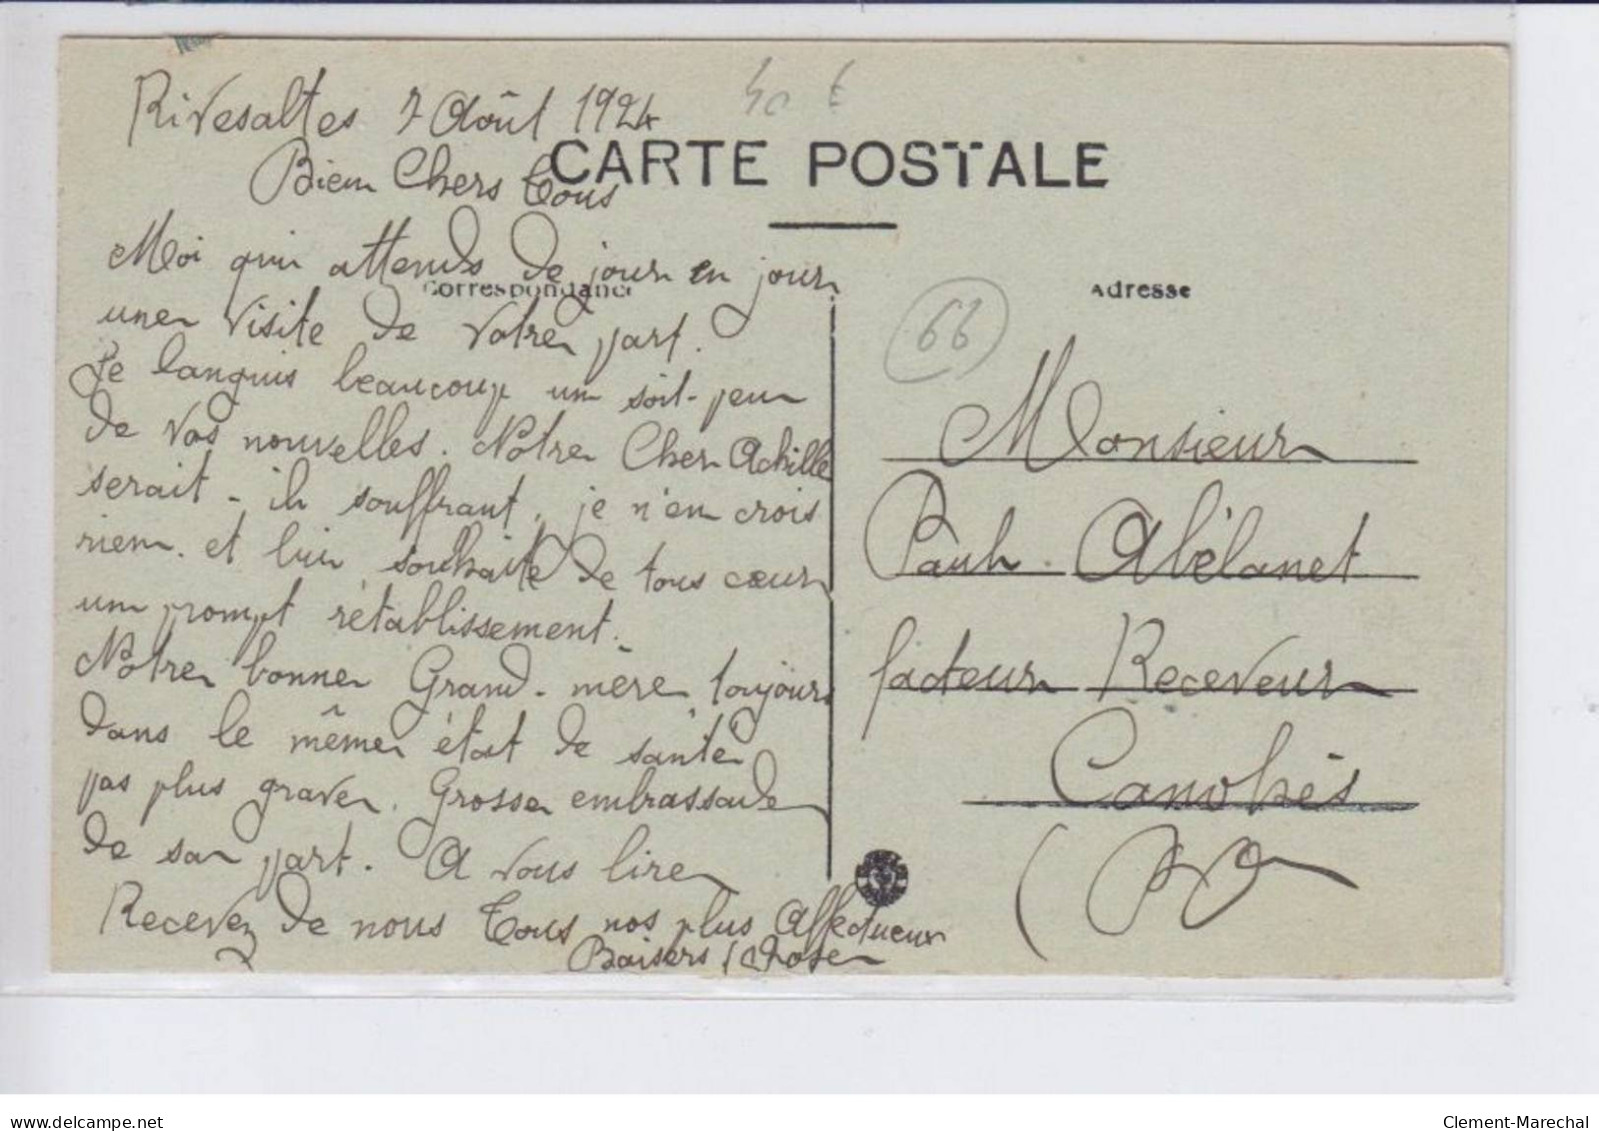 Rivesaltes 7 Août 1924
40 €
CARTE POSTALE
Bien Chers Tous
Moi qui attends de jour en jour
Correspondance
une visite de votre part.
Je languis beaucoup un soit-peu
de vos nouvelles. Notre Cher Achille
serait-il souffrant, je n'en crois
rien. et lui souhaite de tous cœur
un prompt rétablissement.
Notre bonne Grand-mère toujours
dans le même état de santé
pas plus grave. Grosse embrassade
de sa part. A vous lire
Recevez de nous Tous nos plus Affectueux
Baisers
Adresse
66
Monsieur
Paul Abélanet
facteur Receveur
Canohès
Clement-Marechal
delcampe.net